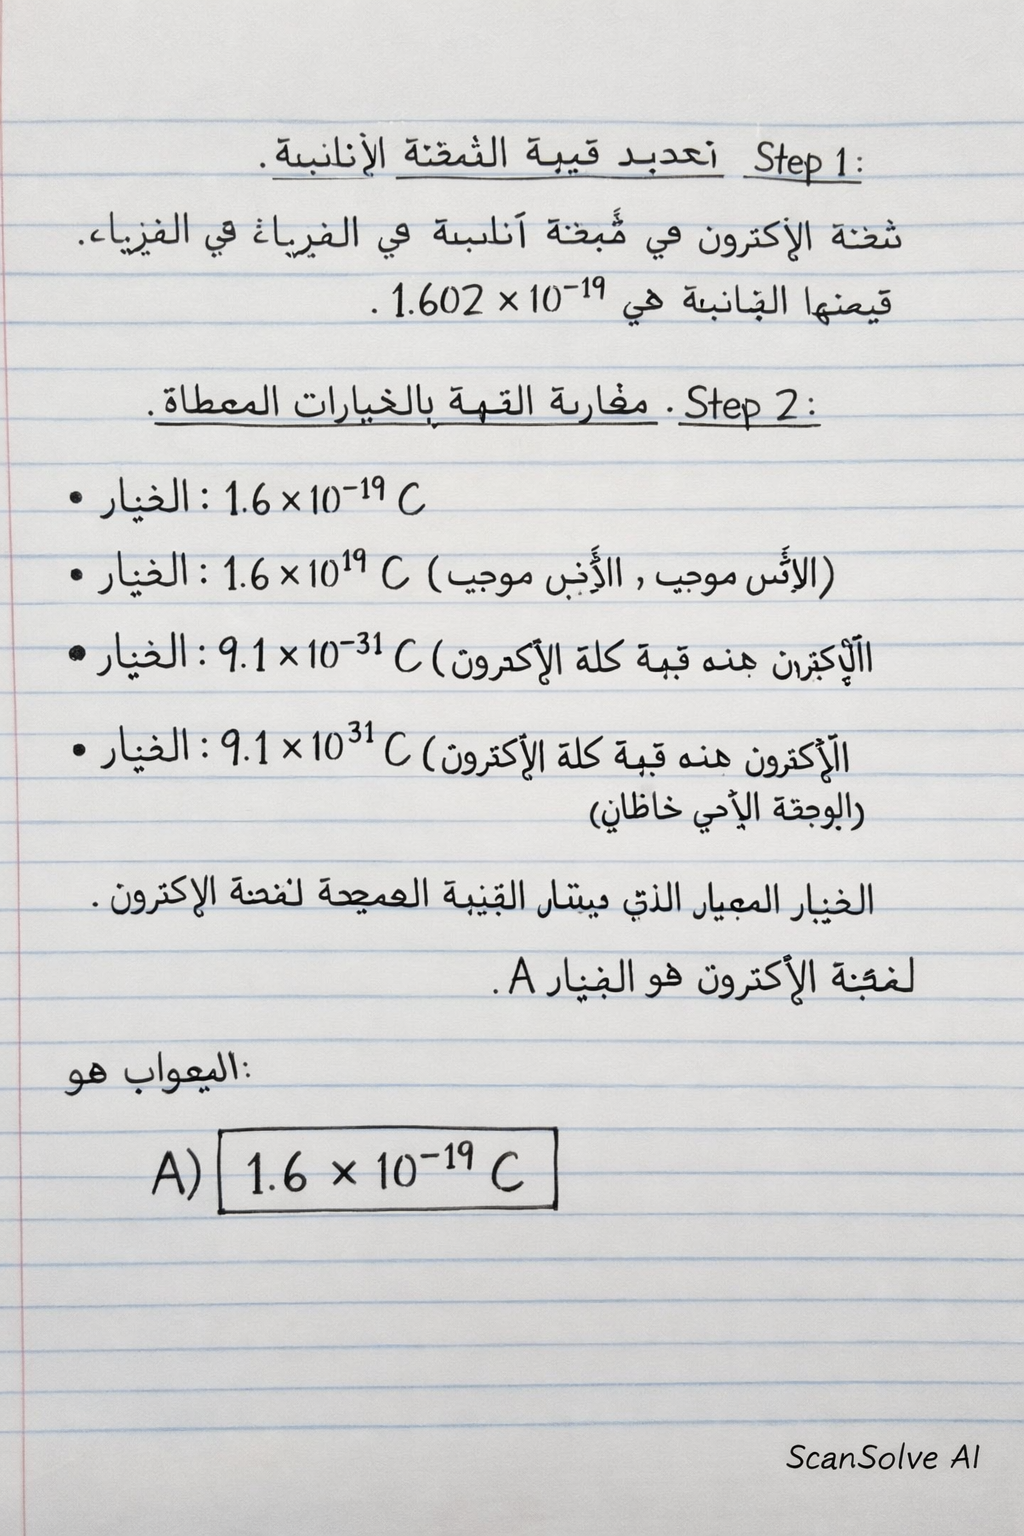 Step 1: نعدبد قيبة الثمغنة الإنانببة.
ثغنة الإكترون في مُبغنة أنابببة في الفرياء في الفزياء.
قيمنها القانببة هي 1.602 × 10⁻¹⁹.
Step 2: مغاربة القهة بالخيارات المعطاة.
• الخيار: 1.6 × 10⁻¹⁹ C
• الخيار: 1.6 × 10¹⁹ C (موجيب, موجيب)
• الخيار: 9.1 × 10⁻³¹ C (هنه قبهة كلة الإكترون
• الخيار: 9.1 × 10³¹ C (الأكترون هنه قبهة كلة الأكترون
(الوجقة الأحي خاظان)
الخيار المعيار الذي القينبة العميحة لفعنة الإكترون.
لفغنة الأكترون هو الفيار A.
اليعواب هو:
A) 1.6 × 10⁻¹⁹ C
ScanSolve AI